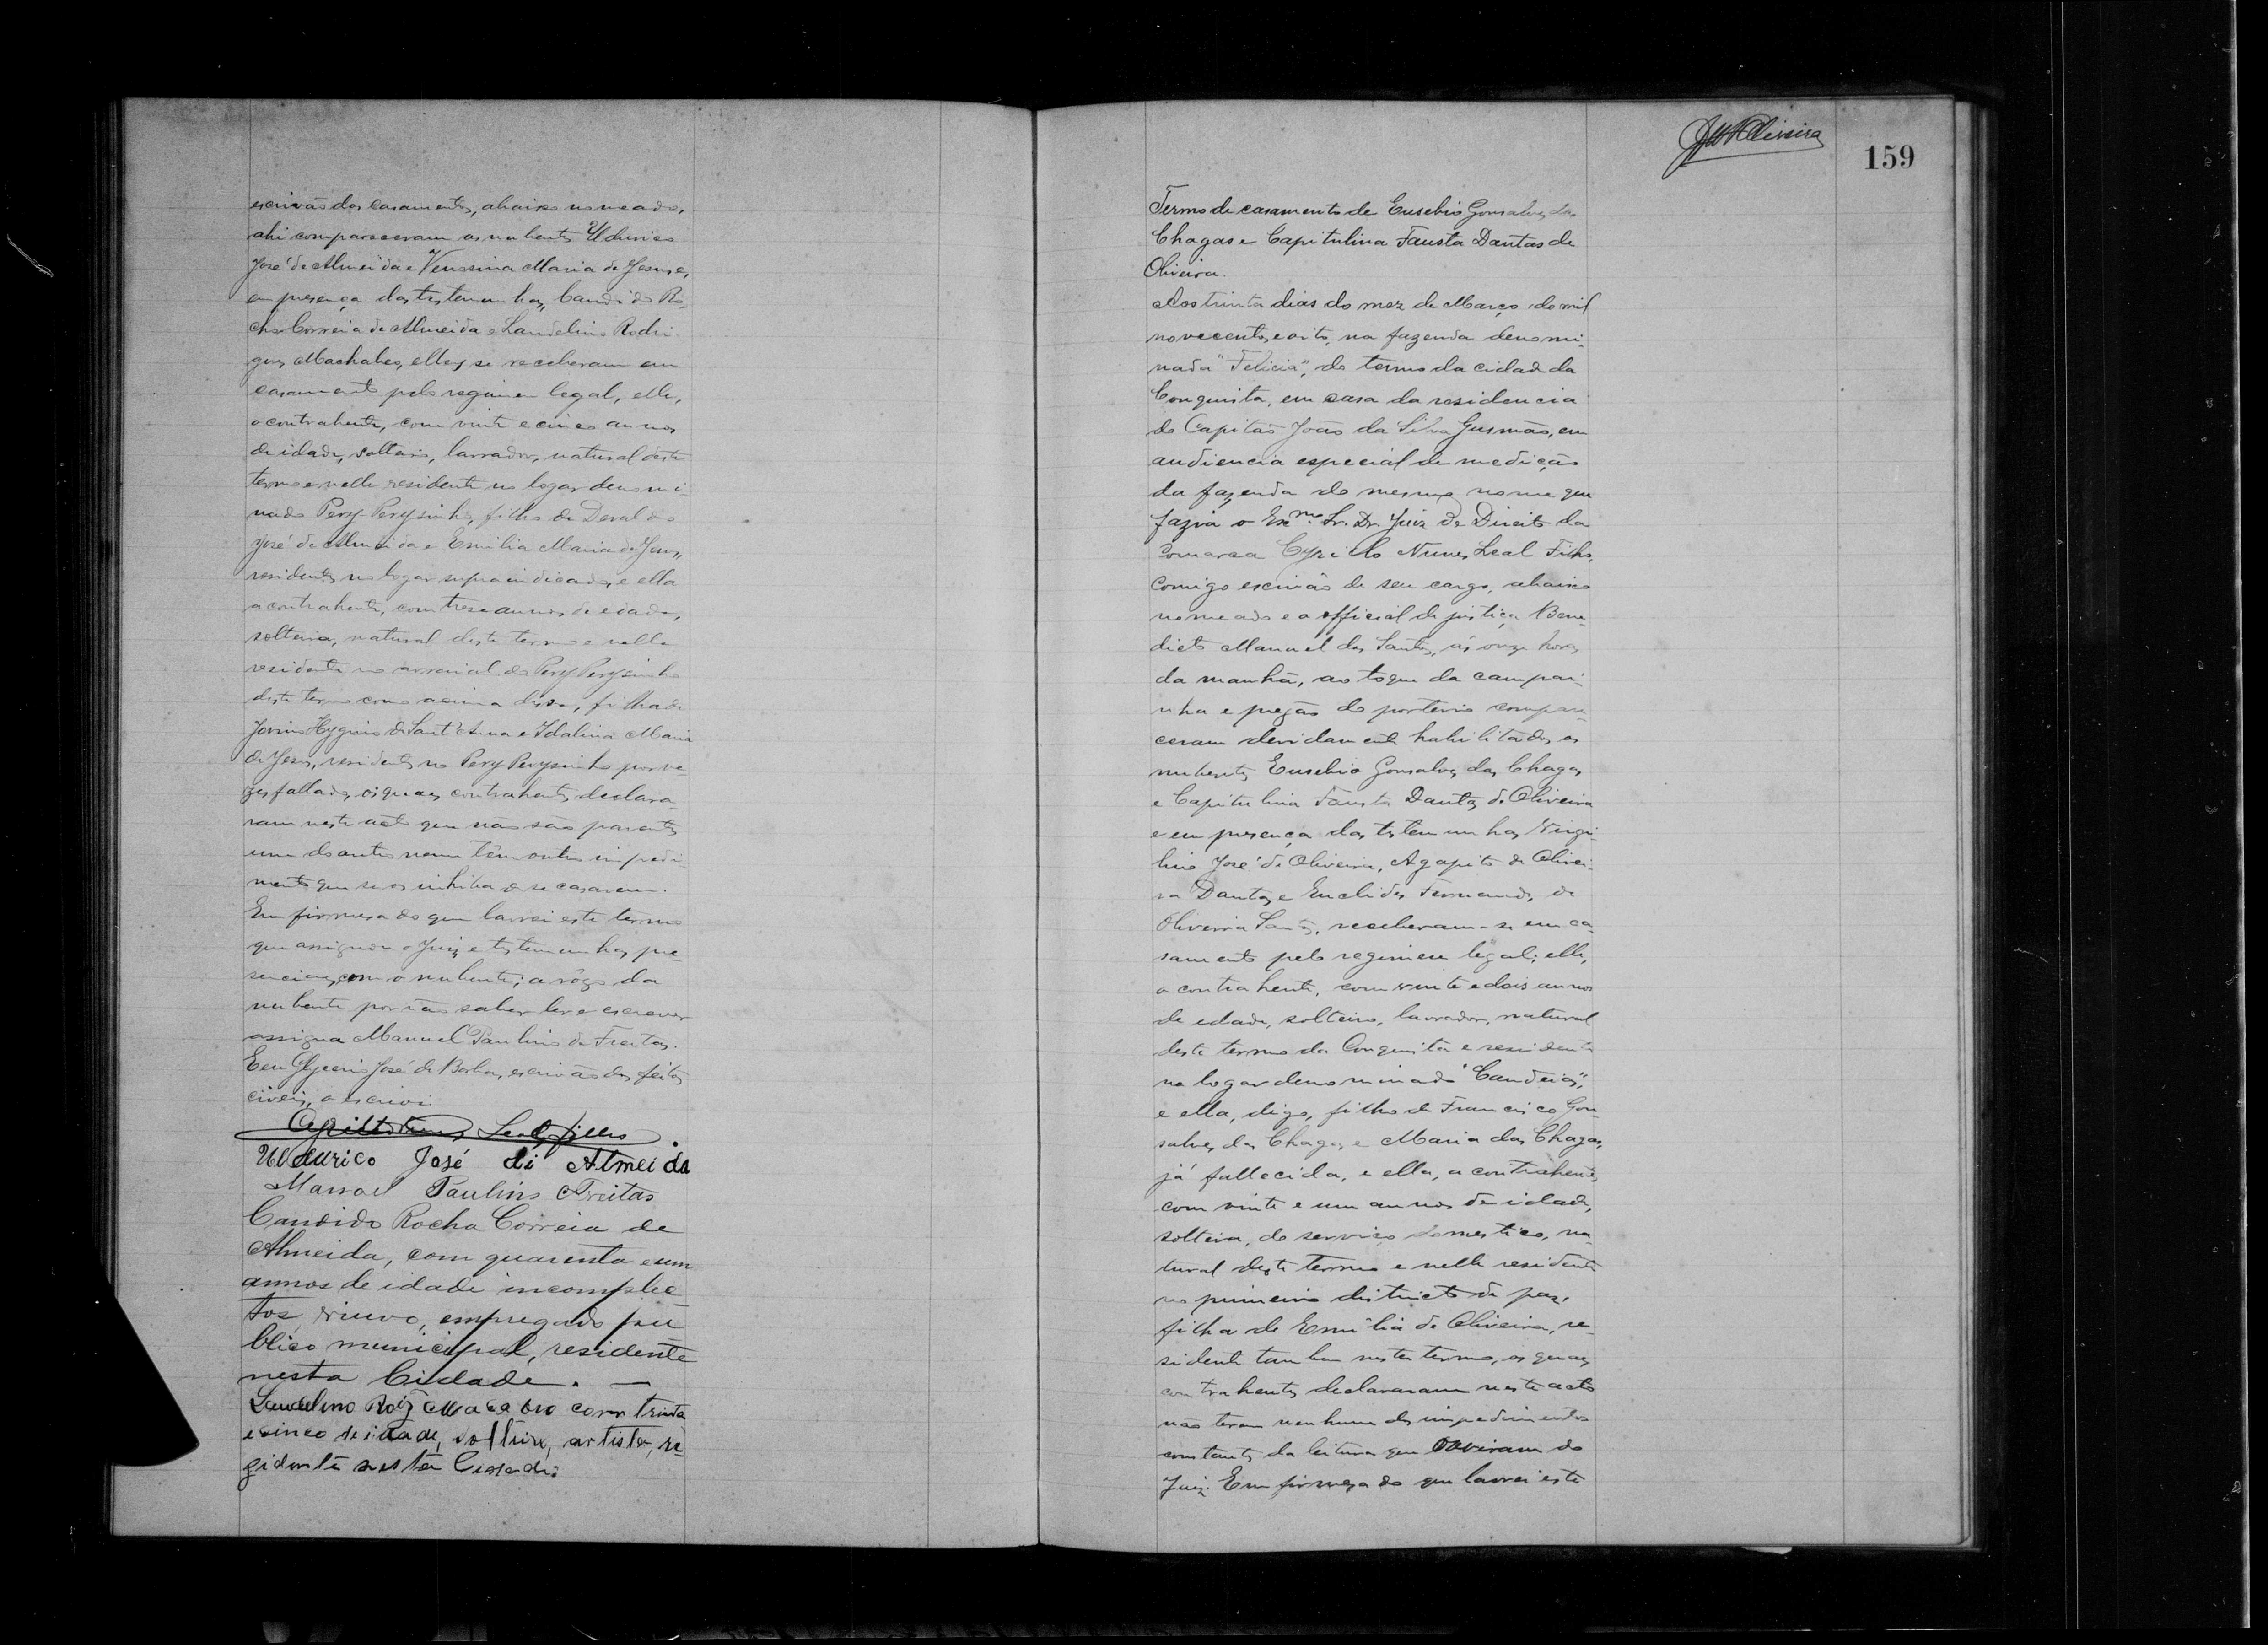 escrivão dos casamentos, abaixo nomeado,
ahi compareceram os nubentes Uldurico
José de Almeida e Venosina Maria de Jesus e,
em presença das testemunhas, Candido Ro-
cha Correia de Almeida e Laudelino Rodri-
gues Machabeo, elles se receberam em
casamento pelo regimen legal, elle,
o contrahente, com vinte e cinco annos
de idade, solteiro, lavrador, natural deste
termo e nelle residente no logar denomi-
nado Pery-Perysinho, filho de Deraldo
José de Almeida e Emilia Maria de Jesus,
residentes no logar supraindicado, e ella
a contrahente, com treze annos de edade,
solteira, natural deste termo e nelle
residente no arraial do Pery Perysinho
deste termo como acima disse, filha de
Jovino Hygino de Sant'Anna e Idalina Maria
de Jesus, residentes no Pery Perysinho por ve-
zes fallado, os quaes contrahentes declara-
ram neste acto que não são parentes
um do outro nem têm outro impedi-
mento que os inhiba de se casarem.
Em firmeza do que lavrei este termo
que assignou o Juiz e testemunhas pre-
senciaes, com o nubente; a rôgo da
nubente por não saber ler e escrever
assigna Manuel Paulino de Freitas.
Eu Glycerio José de Borba, escrivão dos feitos
civeis, o escrivi.
Cyrillo Nunes Leal Filho.
Uldurico José di Almeida
Manoel Paulino Freitas
Candido Rocha Correia de
Almeida, com quarenta e um
annos de idade incomple-
tos, viuvo, empregado pu
blico municipal, residente
nesta Cidade. —
Laudelino Roiz Macabio com trinta
e cinco de idade, solteiro, artista, re-
zidente nesta Cidade.
159
Termo de casamento de Eusebio Gonsalves das
Chagas e Capitulina Fausta Dantas de
Oliveira.
Aos trinta dias do mez de Março de mil
novecentos e oito, na fazenda denomi-
nada "Felicia", do termo da cidade da
Conquista, em casa da residencia
do Capitão João da Silva Gusmão, em
audiencia especial de medição
da fazenda do mesmo nome que
fazia o Exmo. Sr. Dr. Juiz de Direito da
Comarca Cyrillo Nunes Leal Filho,
comigo escrivão de seu cargo, abaixo
nomeado e o official de justiça Bene-
dicto Manuel dos Santos, ás onze horas
da manhã, ao toque da campai-
nha e pregão do porteiro compare-
ceram devidamente habilitados os
nubentes Eusebio Gonsalves das Chagas
e Capitulina Fausta Dantas de Oliveira
e em presença das testemunhas Virgi-
lino José de Oliveira, Agapito de Olivei-
ra Dantas e Euclides Fernandes de
Oliveira Santos, receberam-se em ca-
samento pelo regimen legal; elle,
o contrahente, com vinte e dois annos
de edade, solteiro, lavrador, natural
deste termo da Conquista e residente
no logar denominado "Candeias",
e ella, digo, filho de Francisco Gon-
salves das Chagas e Maria das Chagas,
já fallecida, e ella, a contrahente,
com vinte e um annos de idade,
solteira, do serviço domestico, na-
tural deste termo e nelle residente
no primeiro districto de paz,
filha de Emilia de Oliveira, re-
sidente tambem neste termo, os quaes
contrahentes declararam neste acto
não terem nenhum dos impedimentos
constantes da leitura que ouviram do
Juiz. Em firmeza do que lavrei este